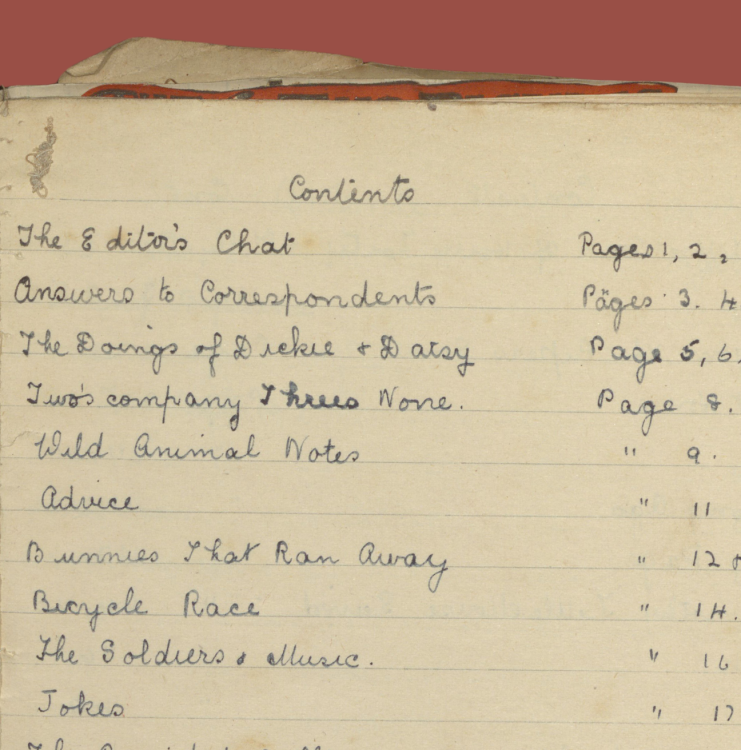 Contents
The Editor's Chat Pages 1, 2,
Answers to Correspondents Pages 3. 4
The Doings of Dickie & Daisy Page 5, 6.
Two's company Threes None. Page 8.
Wild Animal Notes " 9.
Advice " 11
Bunnies That Ran Away " 12
Bicycle Race " 14.
The Soldiers & Music. " 16
Jokes " 17
The